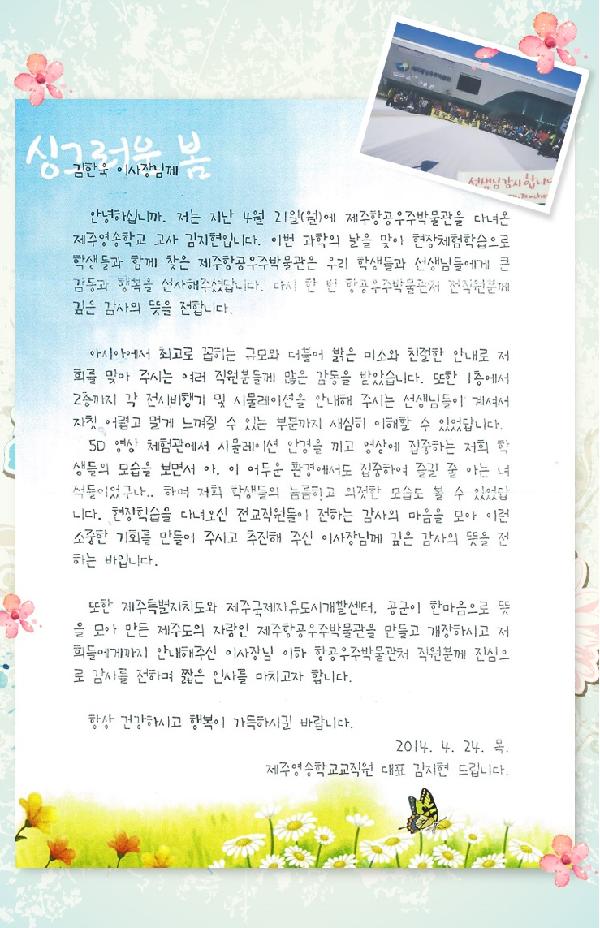 싱그러운 봄
김한욱 이사장님께
선생님 감사합니다
안녕하십니까. 저는 지난 4월 21일(월)에 제주항공우주박물관을 다녀온
제주영송학교 교사 김지현입니다. 이번 과학의 날을 맞아 현장체험학습으로
학생들과 함께 찾은 제주항공우주박물관은 우리 학생들과 선생님들에게 큰
감동과 행복을 선사해주셨답니다. 다시 한 번 항공우주박물관처 전직원분께
깊은 감사의 뜻을 전합니다.
아시아에서 최고로 꼽히는 규모와 더불어 밝은 미소와 친절한 안내로 저
희를 맞아 주시는 여러 직원분들께 많은 감동을 받았습니다. 또한 1층에서
2층까지 각 전시비행기 및 시뮬레이션을 안내해 주시는 선생님들이 계셔서
자칫 어렵고 멀게 느껴질 수 있는 부분까지 세심히 이해할 수 있었답니다.
5D 영상 체험관에서 시뮬레이션 안경을 끼고 영상에 집중하는 저희 학
생들의 모습을 보면서 아. 이 어두운 환경에서도 집중하여 즐길 줄 아는 녀
석들이었구나.. 하며 저희 학생들의 늠름하고 의젓한 모습도 볼 수 있었답
니다. 현장학습을 다녀오신 전교직원들이 전하는 감사의 마음을 모아 이런
소중한 기회를 만들어 주시고 추진해 주신 이사장님께 깊은 감사의 뜻을 전
하는 바입니다.
또한 제주특별자치도와 제주국제자유도시개발센터, 공군이 한마음으로 뜻
을 모아 만든 제주도의 자랑인 제주항공우주박물관을 만들고 개장하시고 저
희들에게까지 안내해주신 이사장님 이하 항공우주박물관처 직원분께 진심으
로 감사를 전하며 짧은 인사를 마치고자 합니다.
항상 건강하시고 행복이 가득하시길 바랍니다.
2014. 4. 24. 목.
제주영송학교교직원 대표 김지현 드립니다.